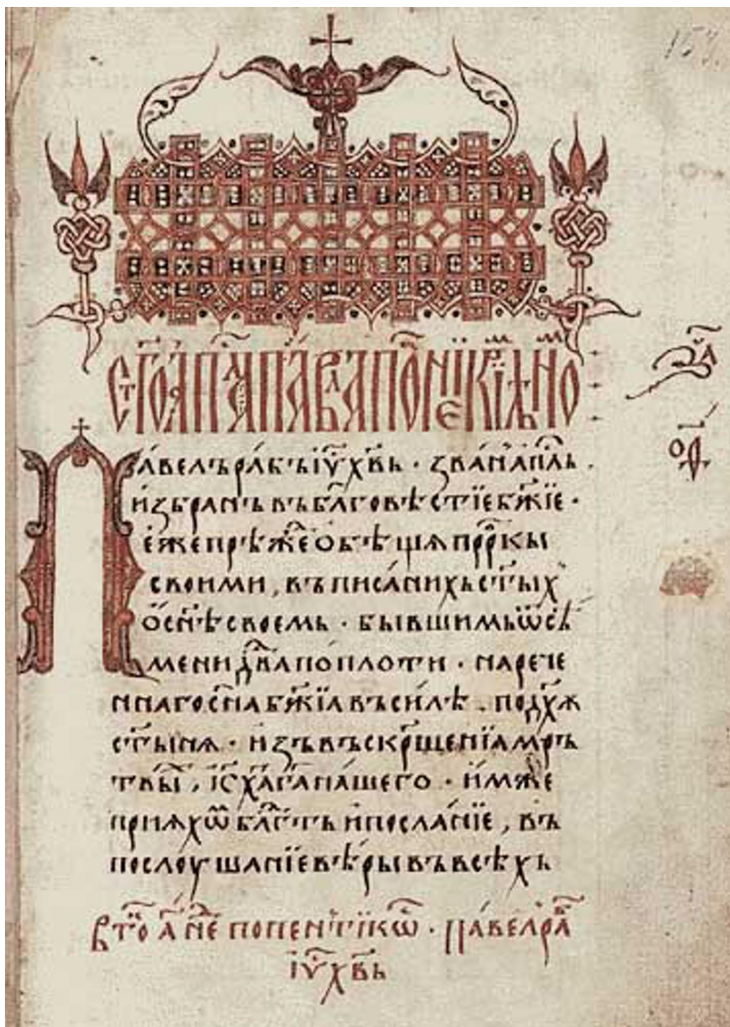 153.
Ст҃го ап҃ла па́вла посла́нїе к римлѧно
Па́велъ ра́бъ і҆у҃ хв҃ъ · зва́нъ ап҃лъ ·
и҆збра́нъ въ бл҃говѣстїе бж҃їе ·
е҆́же пре́жⷣе ѻ҆бѣща прⷪ҇ркы
свои́ми, въ писа́нихь ст҃ыⷯ
ѻ҆ сн҃ѣ своемь · бывшимь ѿ сѣ
мени дв҃да по плоти · нарече
ннаго сн҃а бж҃їа въ си́лѣ . по дх҃ꙋ
ст҃ынѧ · и҆зъ въскрⷭ҇щенїа мр҃ъ
твыⷯ, і҆с҃ х҃а г҃а на́шего · и҆́мже
прїѧхѡⷨ блⷣгть и посла́нїе, въ
послоушанїе вѣ́ры въ всѣ́хь
втоⷬ҇ а҃ неⷣ по пентикѡⷭ҇ · па́велъ ра́бъ
і҆у҃ хв҃ь